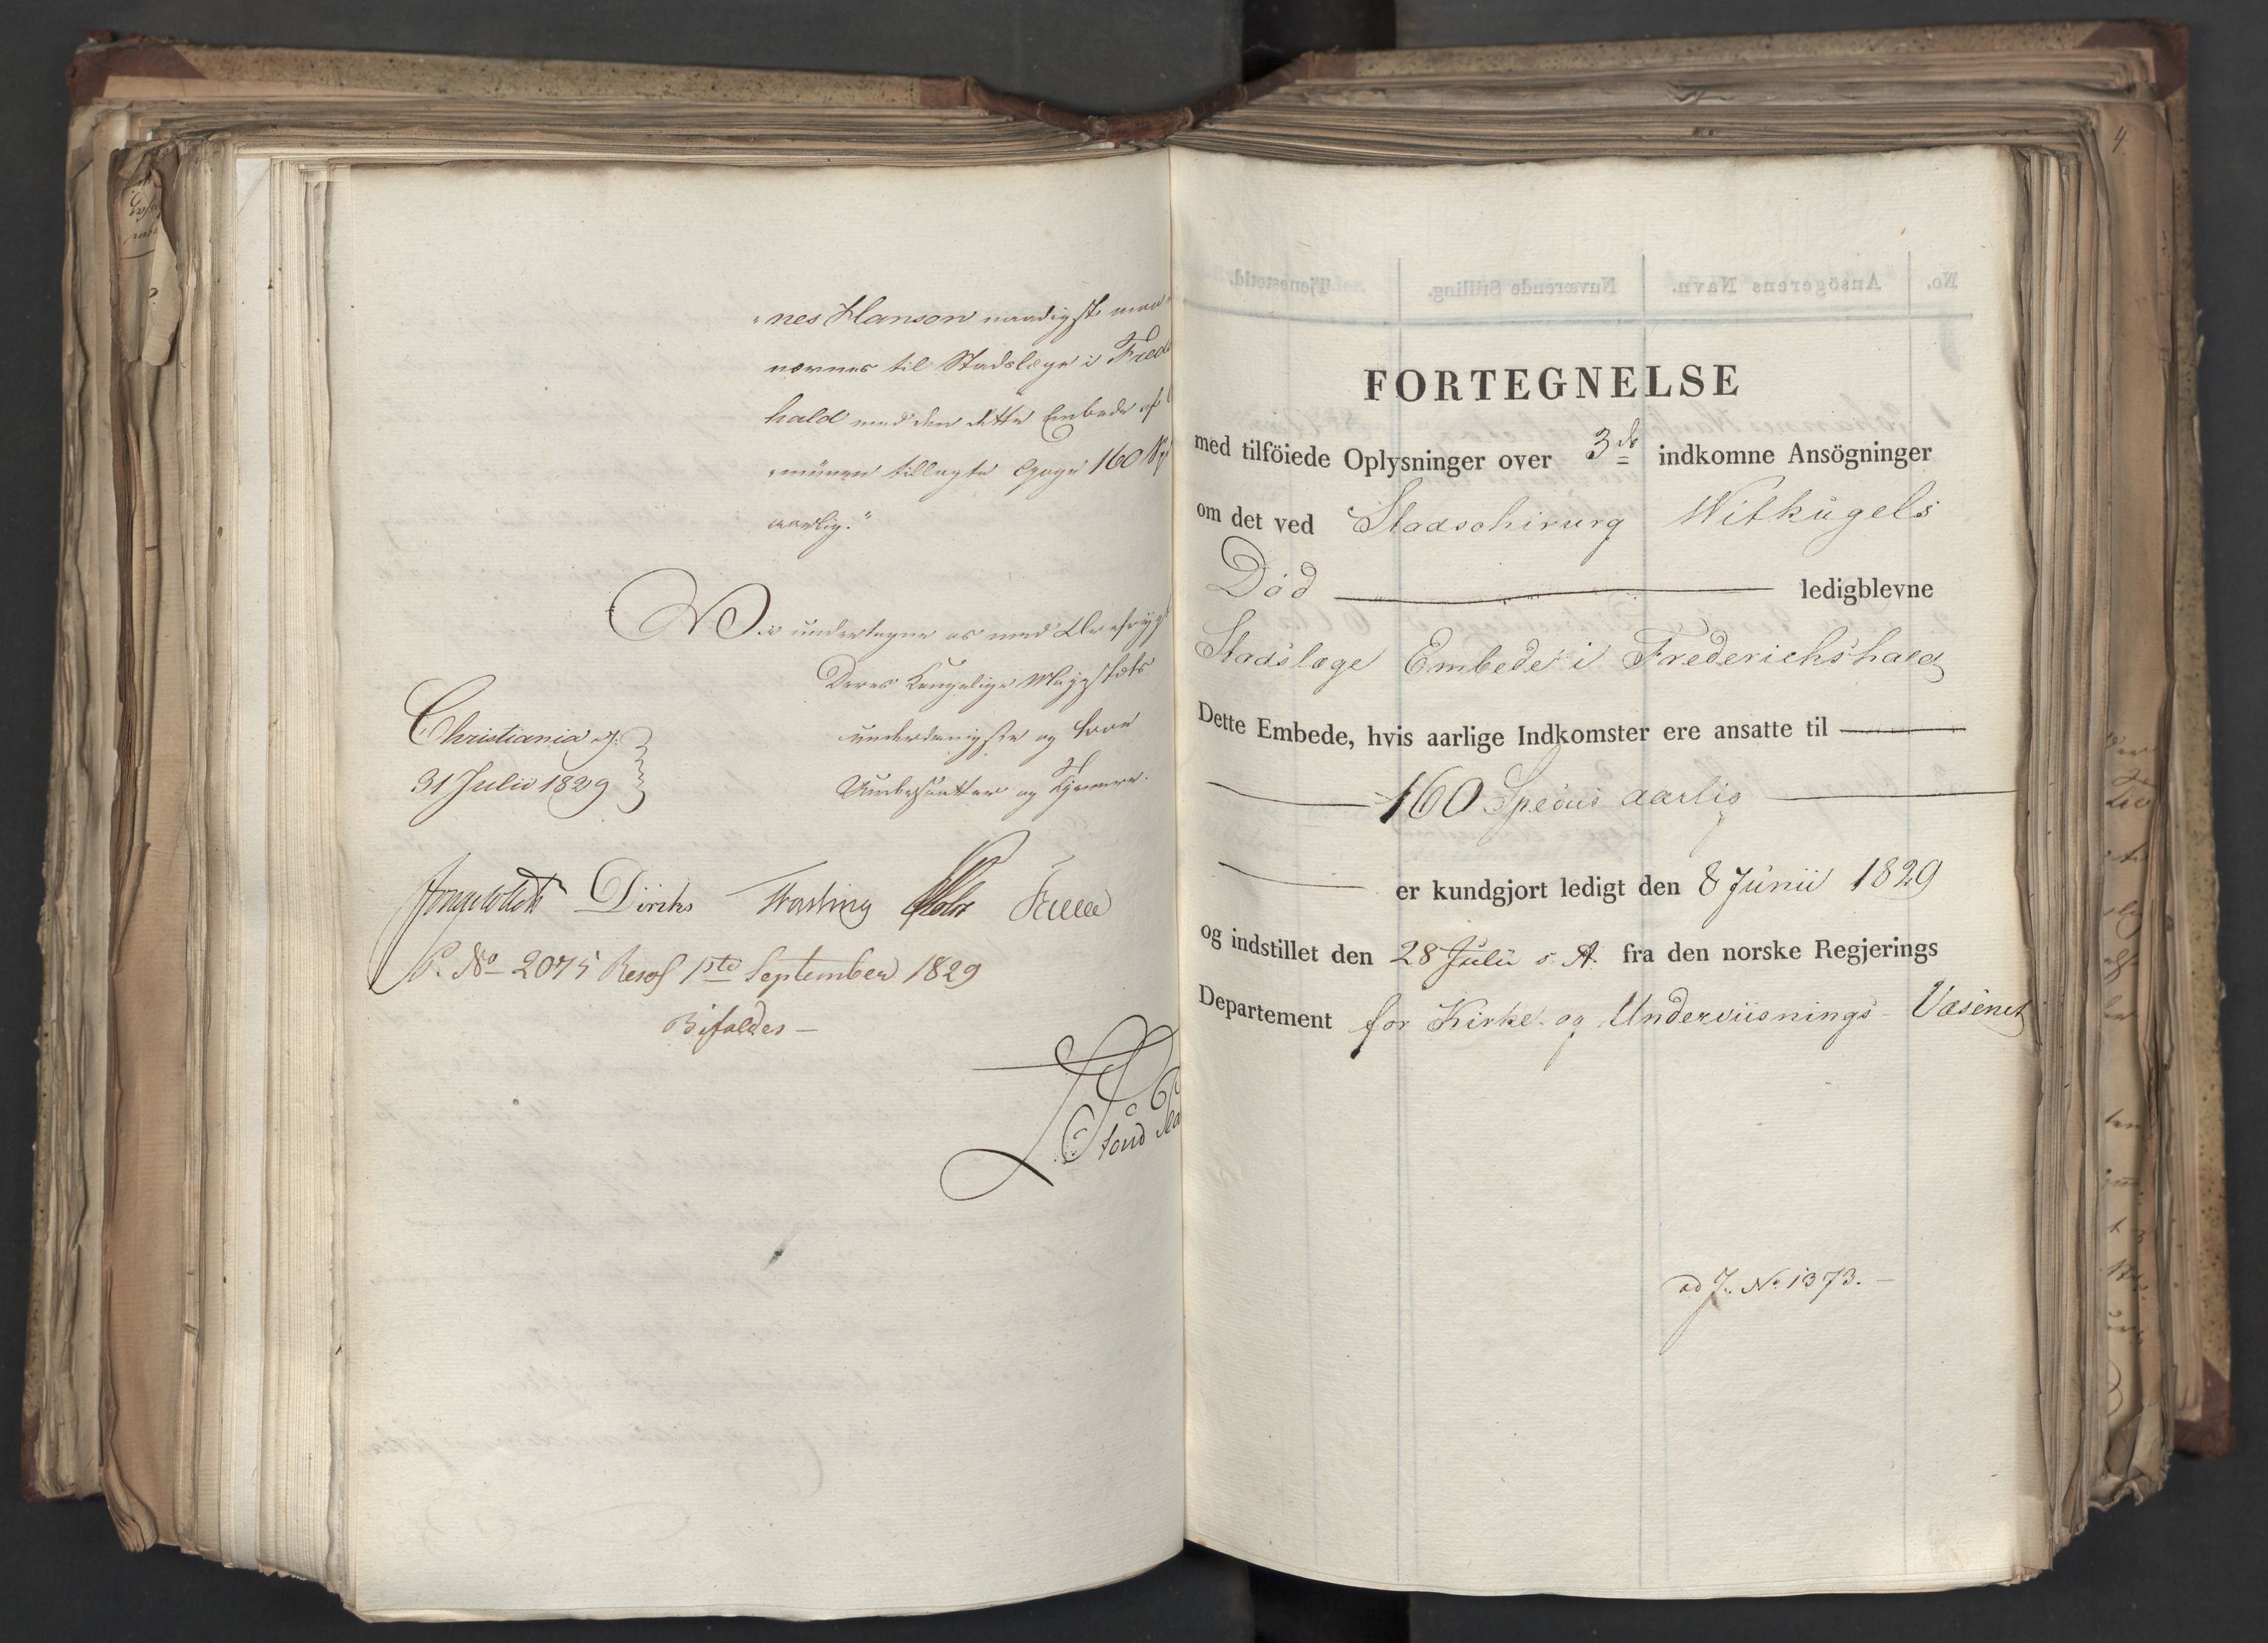 "nes Hanson naadigst maa
nævnes til Stadslæge i Fred
hald med den dette Embede af
münen tillagte Gage 160
aarlig."
Vi undertegne os med
Deres Kongelige Majestæts
underdanigste og troe
Undersaatter og Tjenere.
Christiania d:
31 Julio 1829
Diriks
P. No 2075 Resol 1ste September 1829
Bifaldes —
FORTEGNELSE
med tilföiede Oplysninger over 3de indkomne Ansögninger
om det ved Stadschirurg Witkügels
Död ledigblevne
Stadslæge Embede i Frederichshald
Dette Embede, hvis aarlige Indkomster ere ansatte til
160 Species aarlig
er kundgjort ledigt den 8 Junii 1829
og indstillet den 28 Julii s. A. fra den norske Regjerings
Departement for Kirke- og Underviisnings-Væsenet
ad J. No 1373. —